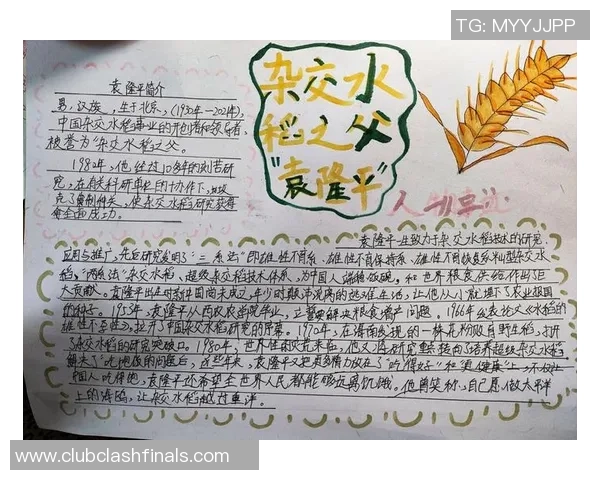 TG: MYYJJPP
杂交水
稻之父
"袁隆平"
袁隆平简介
男,汉族,生于北京,(1930年—2021年),
中国杂交水稻事业的开创者和领导者,
被誉为"杂交水稻之父。
1982年,他经过10多年的刻苦研
究,在有关科研单位的协作下,
使杂交水稻研究获得
成功。
袁隆平一生致力于杂交水稻技术的研究,
应用与推广,先后研究发明"三系法"即雄性不育系、雄性不育保持系、雄性不育恢复系籼型杂交水
稻、"两系法"杂交水稻、超级杂交稻技术体系,为中国人端稳饭碗,和世界粮食供给作出巨
大贡献。袁隆平出生时新中国尚未成立,年少时颠沛流离的逃难生活,让他从小就埋下了农业报国
的种子。1953年,袁隆平从西南农学院毕业,立誓要解决粮食增产问题。1966年发表论文《水稻的
雄性不孕性》,拉开了中国杂交水稻研究的序幕。1970年,在海南发现的一株花粉败育野生稻,打开
了杂交水稻研究突破口。
解决了"吃饱饭的问题后,这些年来,袁隆平又把更多精力放在了"吃得好"和"更健康"上,不仅让
中国人吃得饱,袁隆平还希望全世界人民都能够远离饥饿。他曾笑称,自己愿做太平洋
上的海鸥,让杂交水稻越过重洋。
www.clubclashfinals.com